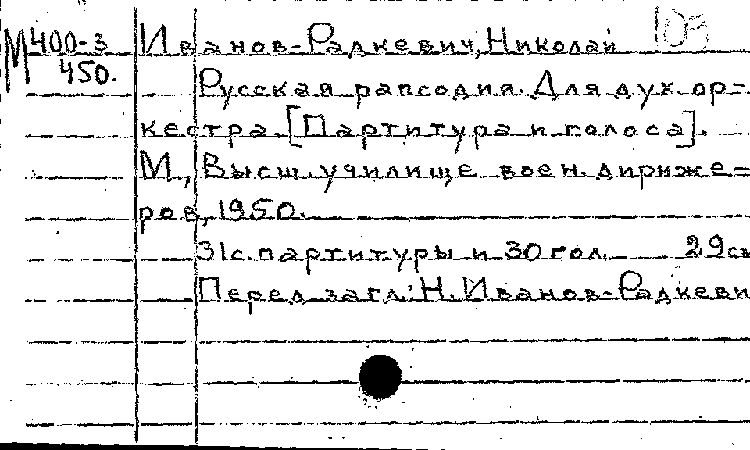 М 400-3 Иванов-Радкевич, Николай
450.
Русская рапсодия. Для дух. ор-
кестра. [Партитура и голоса].
М., Высш. училище воен. дириже=
ров, 1950.
31с. партитуры и 30 гол. 29см
Перед загл.: Н. Иванов-Радкевич